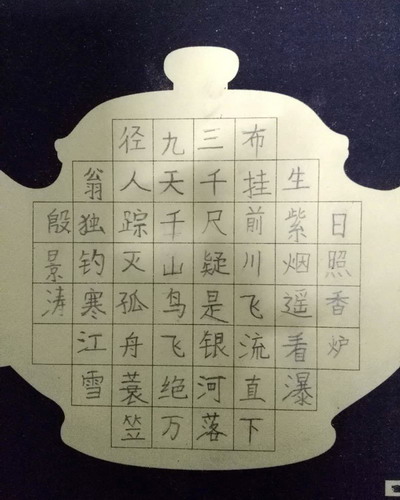 日照香炉
生紫烟遥看瀑
布挂前川飞流直下
三千尺疑是银河落
九天千山鸟飞绝万
径人踪灭孤舟蓑笠
翁独钓寒江雪
殷景涛